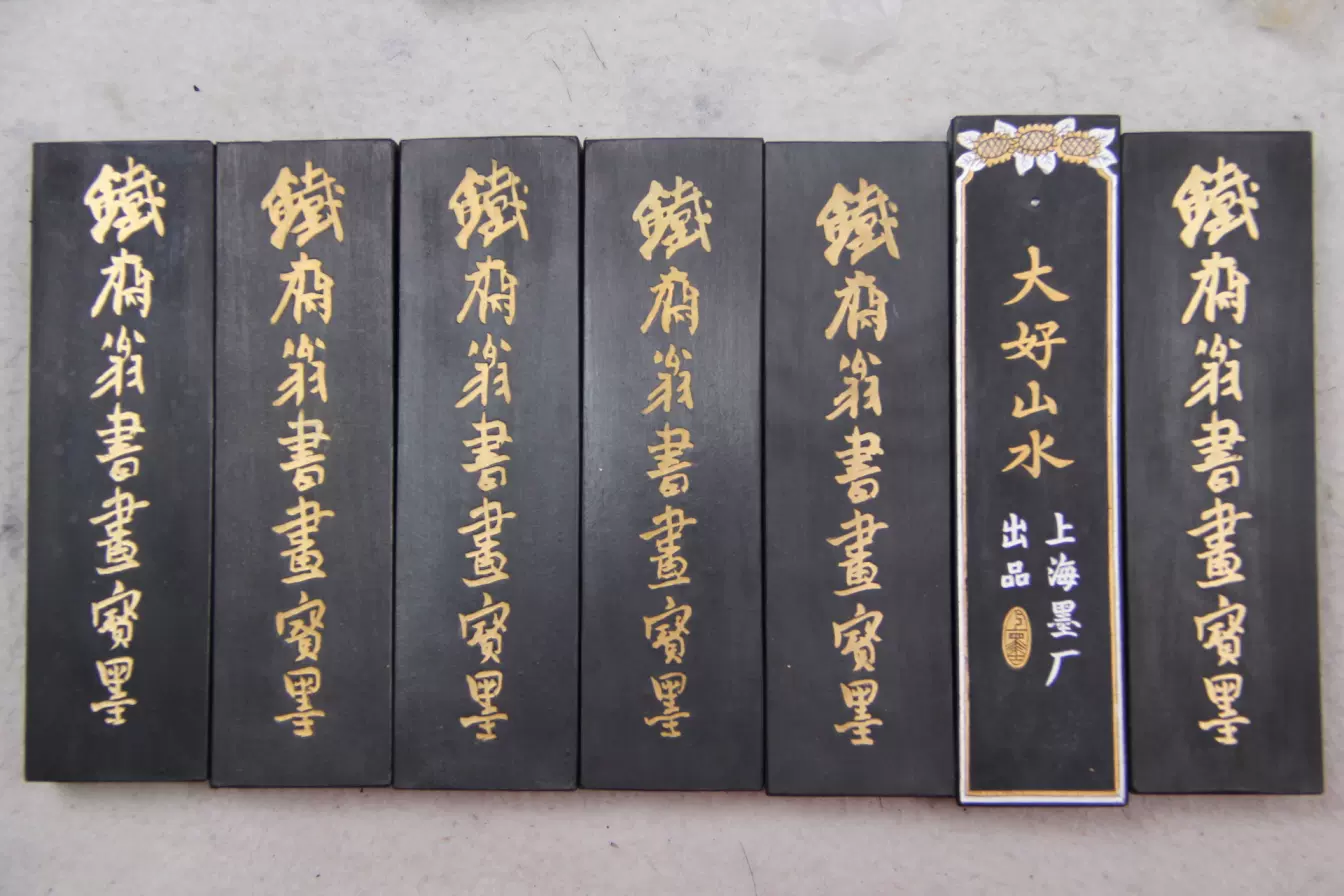 鐵齋翁書畫寶墨
鐵齋翁書畫寶墨
鐵齋翁書畫寶墨
鐵齋翁書畫寶墨
鐵齋翁書畫寶墨
大好山水
上海墨厂
出品
鐵齋翁書畫寶墨